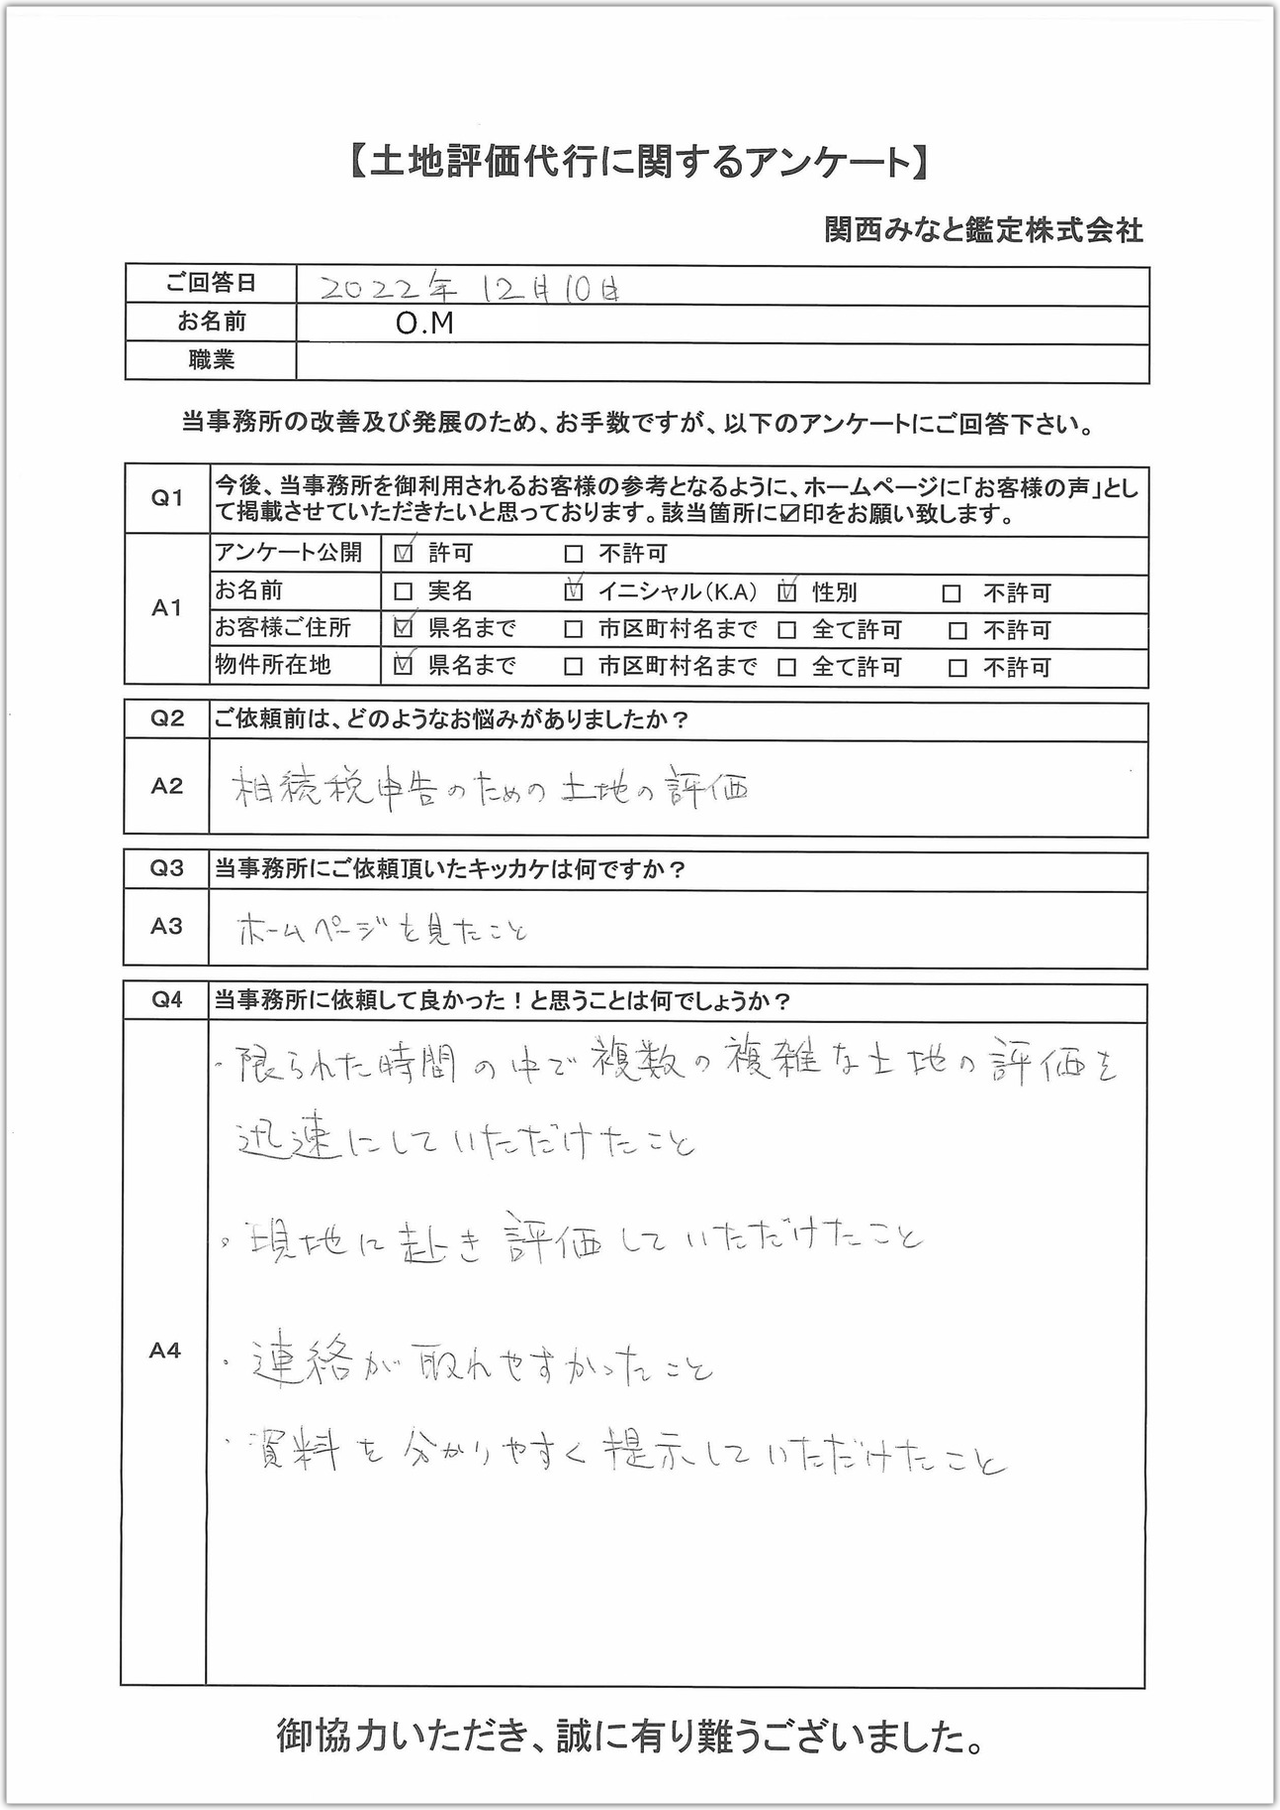 【土地評価代行に関するアンケート】
関西みなと鑑定株式会社
ご回答日 2022年 12月10日
お名前 O.M
職業
当事務所の改善及び発展のため、お手数ですが、以下のアンケートにご回答下さい。
Q1 今後、当事務所を御利用されるお客様の参考となるように、ホームページに「お客様の声」とし
て掲載させていただきたいと思っております。該当箇所に☑印をお願い致します。
A1
アンケート公開 ☑ 許可 □ 不許可
お名前 □ 実名 ☑ イニシャル(K.A) ☑ 性別 □ 不許可
お客様ご住所 ☑ 県名まで □ 市区町村名まで □ 全て許可 □ 不許可
物件所在地 ☑ 県名まで □ 市区町村名まで □ 全て許可 □ 不許可
Q2 ご依頼前は、どのようなお悩みがありましたか？
A2 相続税申告のための土地の評価
Q3 当事務所にご依頼頂いたキッカケは何ですか？
A3 ホームページを見たこと
Q4 当事務所に依頼して良かった！と思うことは何でしょうか？
A4
・限られた時間の中で複数の複雑な土地の評価を
迅速にしていただけたこと
・現地に赴き評価していただけたこと
・連絡が取れやすかったこと
・資料を分かりやすく提示していただけたこと
御協力いただき、誠に有り難うございました。